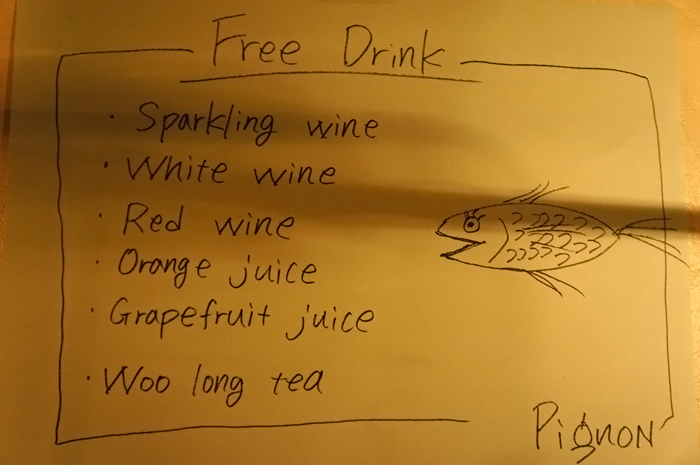 Free Drink
· Sparkling wine
· White wine
· Red wine
· Orange juice
· Grapefruit juice
· Woo long tea
PigNoN